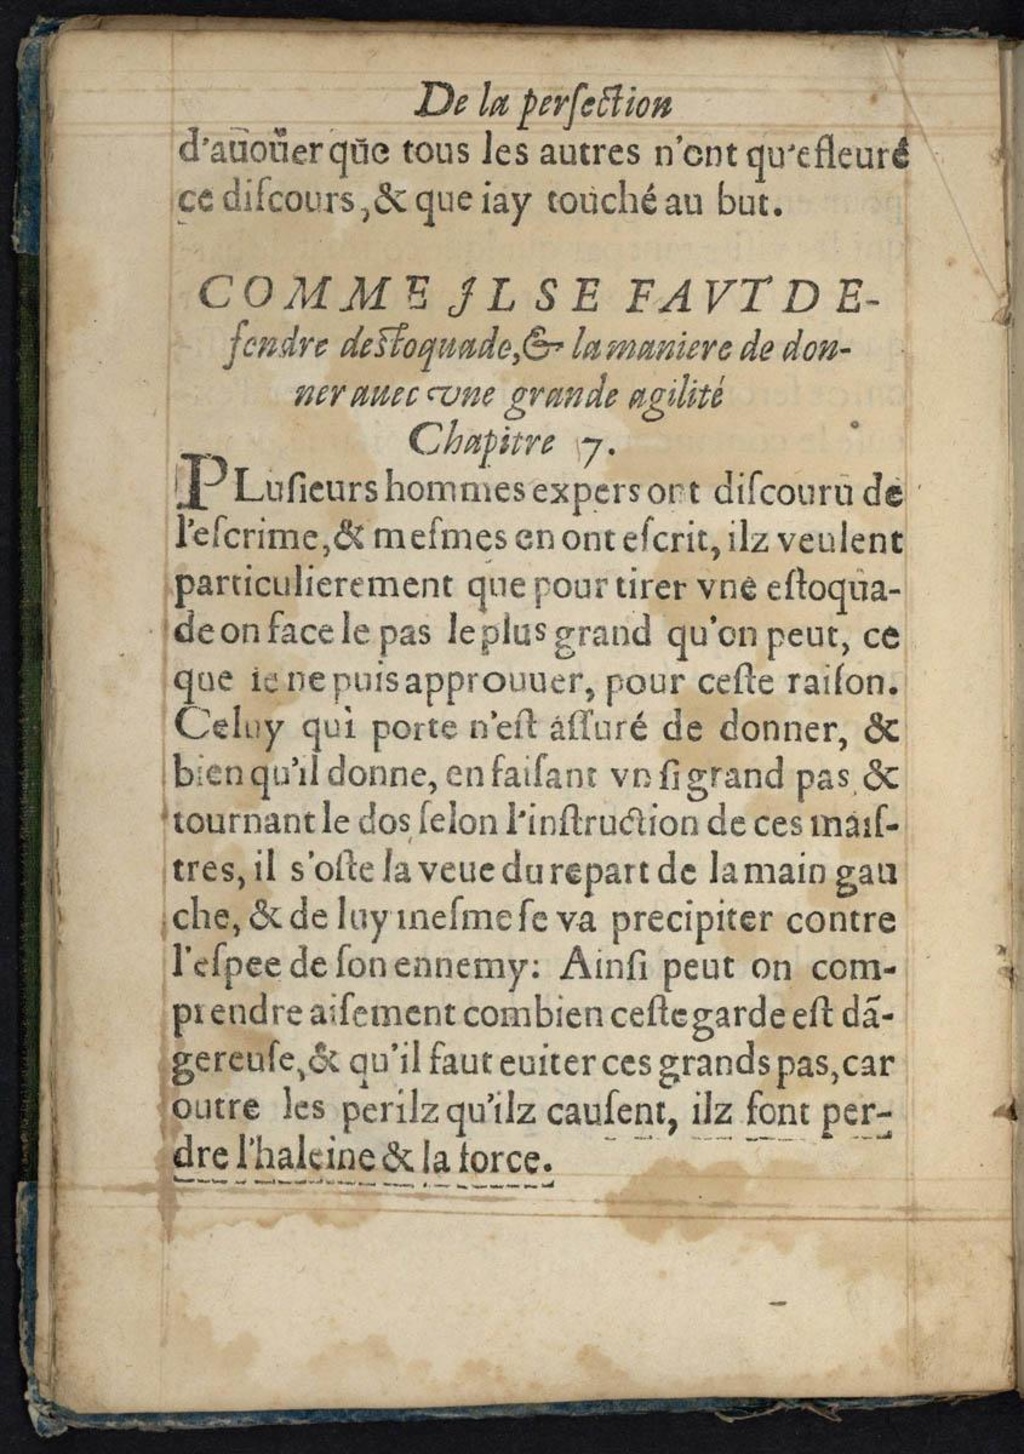 De la perfection
d'auoüer que tous les autres n'ont qu'efleuré
ce diſcours, & que iay touché au but.
COMME JL SE FAVT DE-
fendre deſtoquade, & la maniere de don-
ner auec vne grande agilité
Chapitre 7.
PLuſieurs hommes expers ont diſcouru de
l'eſcrime, & meſmes en ont eſcrit, ilz veulent
particulierement que pour tirer vne eſtoqua-
de on face le pas le plus grand qu'on peut, ce
que ie ne puis approuuer, pour ceſte raiſon.
Celuy qui porte n'eſt aſſuré de donner, &
bien qu'il donne, en faiſant vn ſi grand pas, &
tournant le dos ſelon l'inſtruction de ces maiſ-
tres, il s'oſte la veue du repart de la main gau
che, & de luy meſme ſe va precipiter contre
l'eſpee de ſon ennemy: Ainſi peut on com-
prendre aiſement combien ceſte garde eſt dã-
gereuſe, & qu'il faut euiter ces grands pas, car
outre les perilz qu'ilz cauſent, ilz font per-
dre l'haleine & la force.